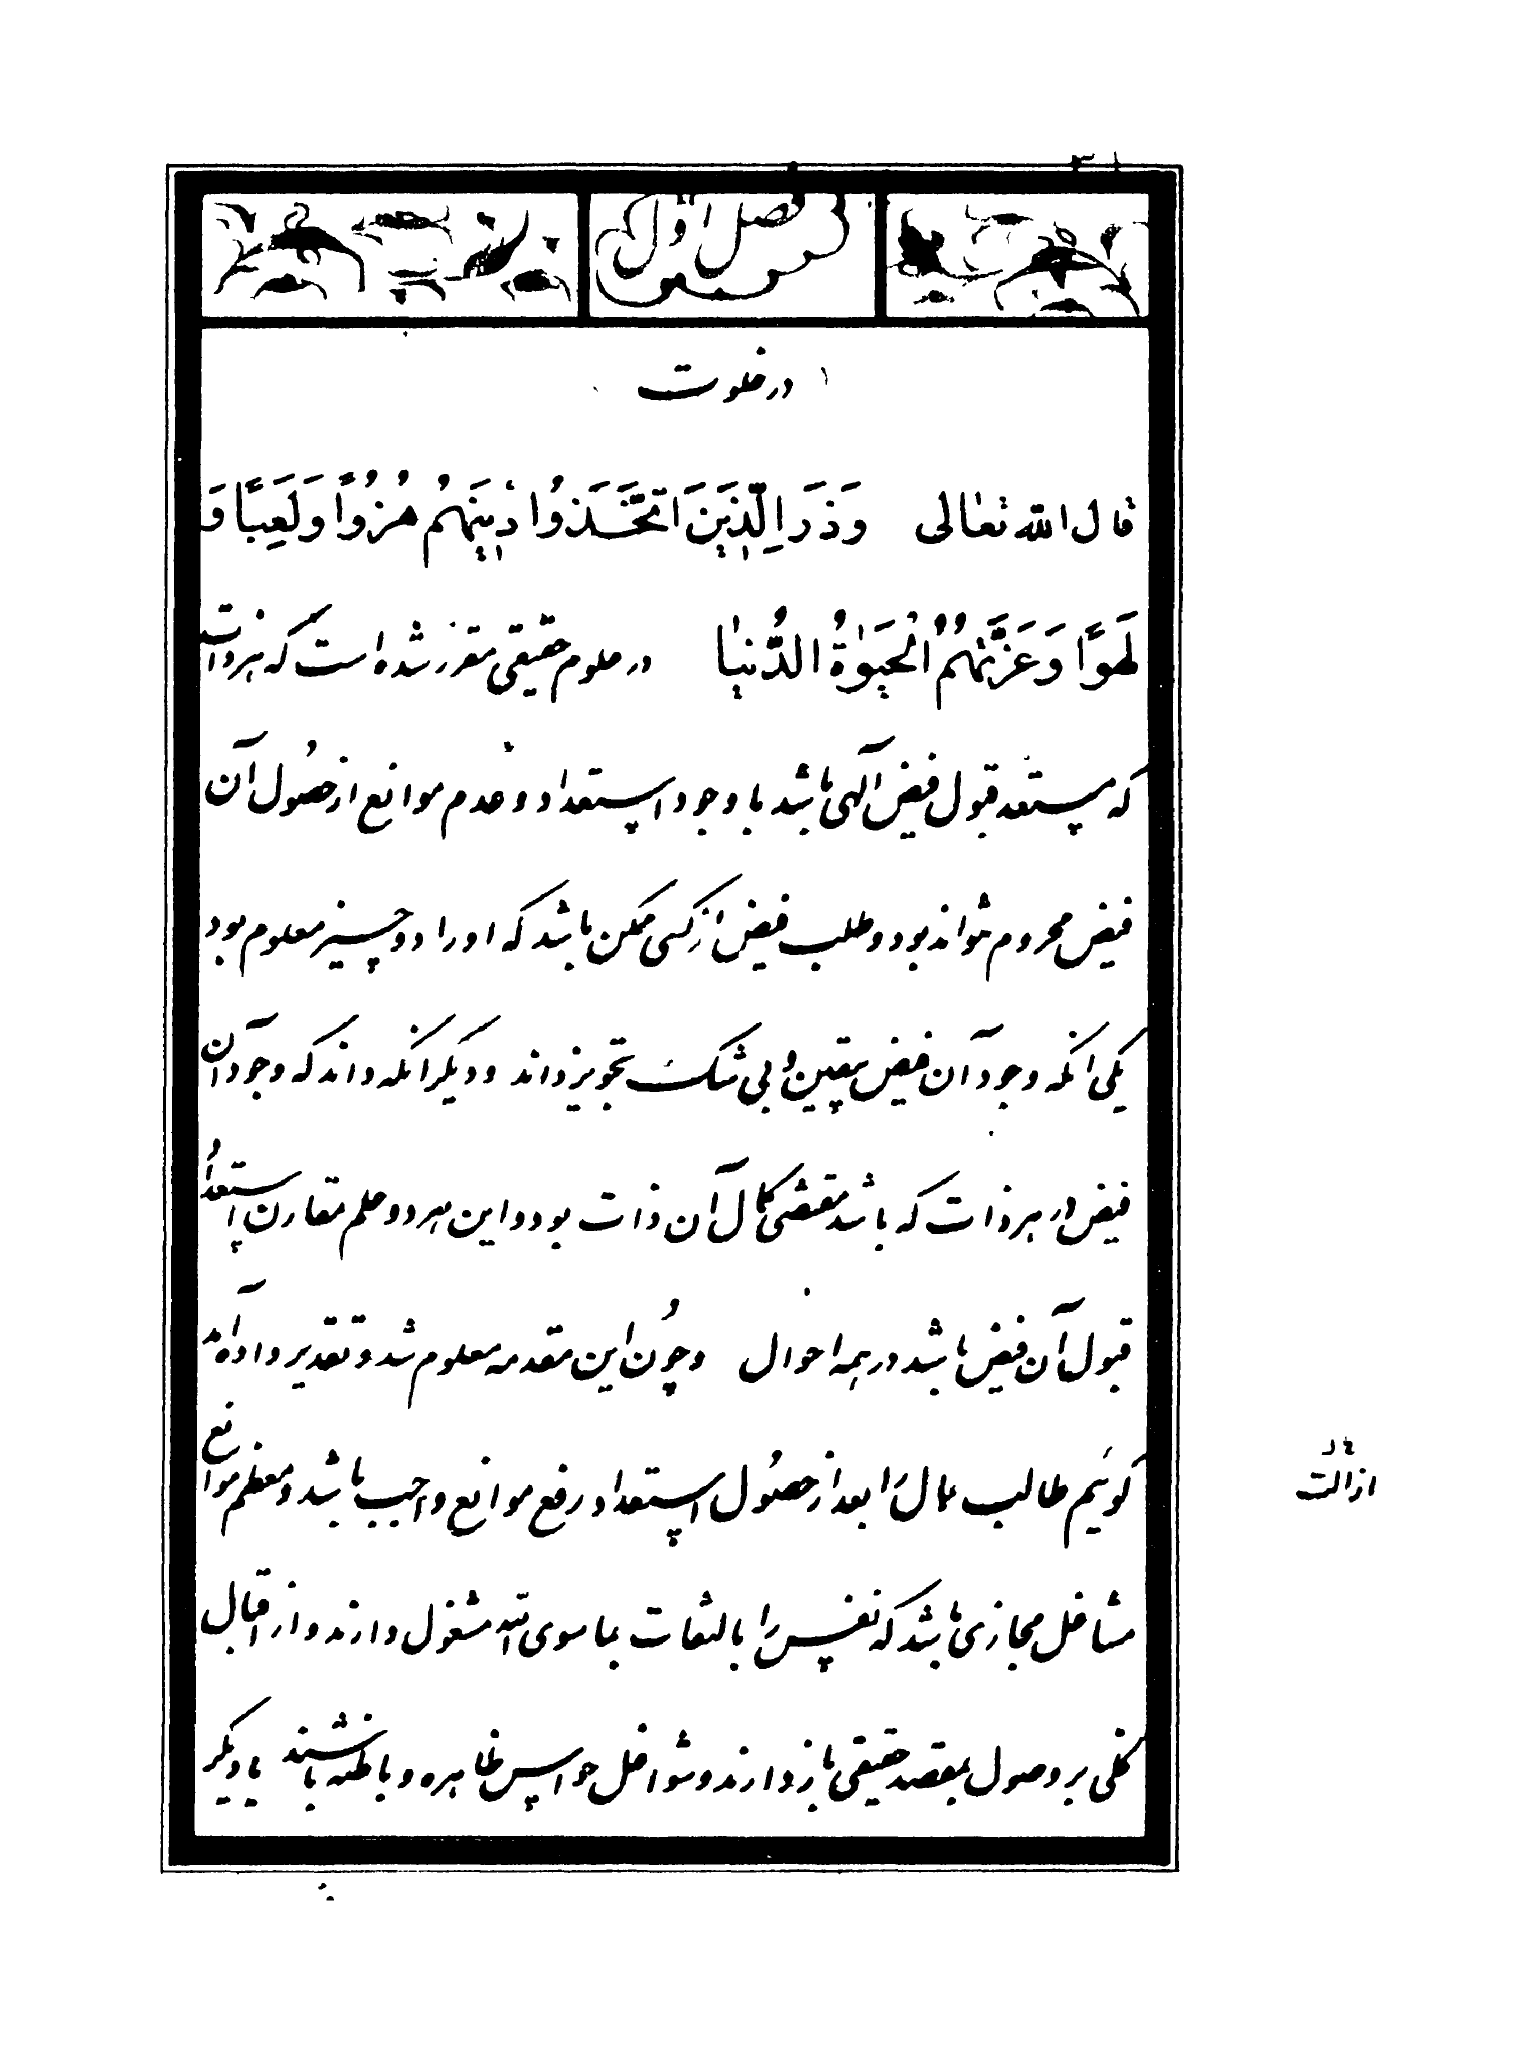 ۳۱
فصل اول
در خلوت
قال الله تعالی وَذَرَ الَّذِینَ اتَّخَذُوا دِینَهُم هُزُوًا وَلَعِبًا وَ
لَهوًا وَغَرَّتهُمُ الحَیوٰةُ الدُّنیٰا در علوم حقیقی مقرر شده است که هر ذات
که مستعد قبول فیض آلهی باشد با وجود استعداد و عدم موانع از حصول آن
فیض محروم نتواند بود و طلب فیض از کسی ممکن باشد که او را دو چیز معلوم بود
یکی انکه وجود آن فیض بیقین و بی شک تجویز داند و دیکر انکه داند که وجود ان
فیض در هر ذات که باشد مقتضی کمال آن ذات بود و این هر دو علم مقارن استعداد
قبول آن فیض باشد در همه احوال و چون این مقدمه معلوم شد و تقدیر داده آمد
کوئیم طالب کمال را بعد از حصول استعداد رفع موانع واجب باشد و معظم موانع
مشاغل مجازی باشد که نفس را بالتفات بما سوی الله مشغول دارند و از اقبال
کلی بر وصول بمقصد حقیقی باز دارند و شواغل حواس ظاهره و باطنه باشند یا دیکر
ازالت